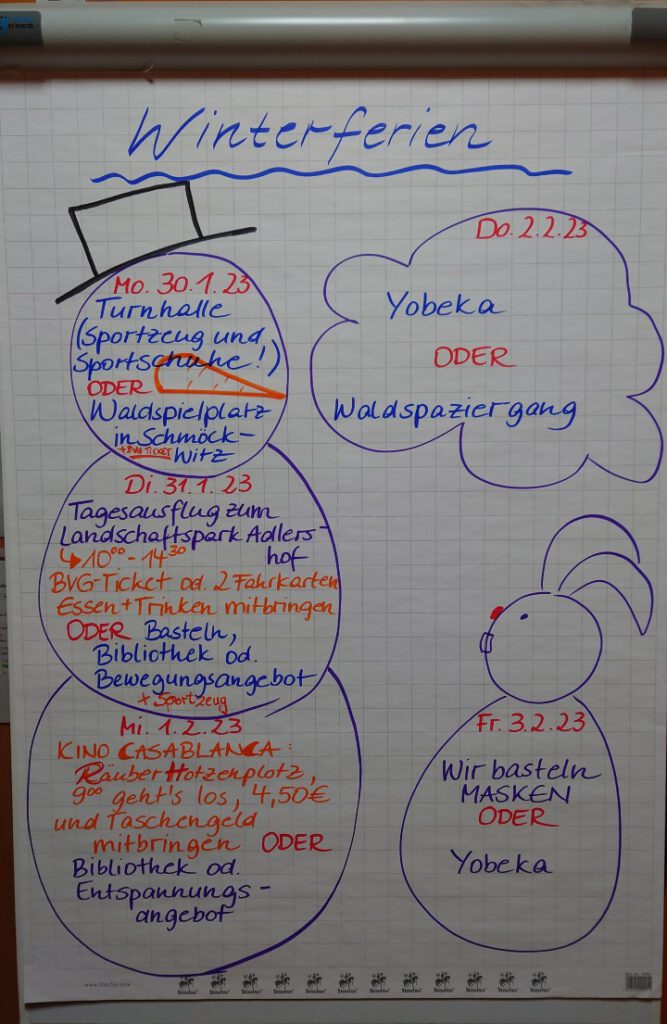 Winterferien
Mo. 30.1.23
Turnhalle
(Sportzeug und
Sportschuhe!)
ODER
Waldspielplatz
in Schmöck-
+BVG TICKET witz
Di. 31.1.23
Tagesausflug zum
Landschaftspark Adlers-
hof
↳ 10⁰⁰ - 14³⁰
BVG-Ticket od. 2 Fahrkarten
Essen + Trinken mitbringen
ODER Basteln,
Bibliothek od.
Bewegungsangebot
+ Sportzeug
Mi. 1.2.23
KINO CASABLANCA:
Räuber Hotzenplotz,
9⁰⁰ geht's los, 4,50€
und Taschengeld
mitbringen ODER
Bibliothek od.
Entspannungs-
angebot
Do. 2.2.23
Yobeka
ODER
Waldspaziergang
Fr. 3.2.23
Wir basteln
MASKEN
ODER
Yobeka
www.Staufen.com
Staufen Staufen Staufen Staufen Staufen Staufen Staufen Staufen Staufen Staufen Staufen Staufen